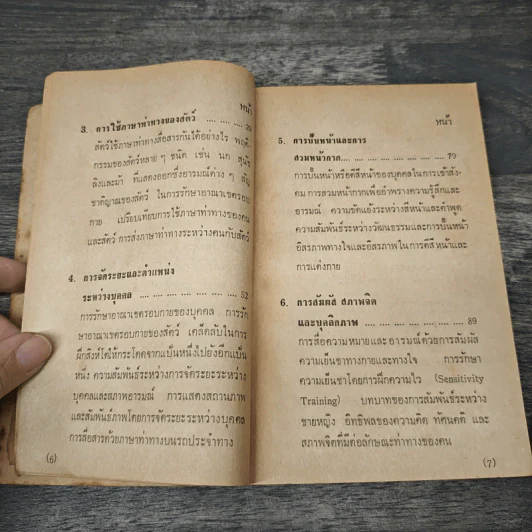 หน้า
3. การใช้ภาษาท่าทางของสัตว์ ... ... ...
สัตว์ใช้ภาษาท่าทางสื่อสารกันได้อย่างไร
กรรมของสัตว์หลาย ๆ ชนิด เช่น นก สุนัข
ลิงและม้า ที่แสดงออกซึ่งอารมณ์ต่าง ๆ
ชาติญาณของสัตว์ ในการรักษาอาณาเขตรอบ
กาย เปรียบเทียบการใช้ภาษาท่าทางของคน
และสัตว์ การส่งภาษาท่าทางระหว่างคนกับสัตว์
4. การจัดระยะและตำแหน่ง
ระหว่างบุคคล ... ... ... ... ... ... 52
การรักษาอาณาเขตรอบกายของบุคคล การรัก
ษาอาณาเขตรอบกายของสัตว์ เคล็ดลับในการ
ฝึกสิงห์โตให้กระโดดจากแป้นหนึ่งไปยังอีกแป้น
หนึ่ง ความสัมพันธ์ระหว่างการจัดระยะระหว่าง
บุคคลและสภาพอารมณ์ การแสดงสถานภาพ
และสัมพันธ์ภาพโดยการจัดระยะระหว่างบุคคล
การสื่อสารด้วยภาษาท่าทางบนรถประจำทาง
(6)
หน้า
5. การปั้นหน้าและการ
สวมหน้ากาก... ... ... ... ... ... ... 79
การปั้นหน้าหรือตีสีหน้าของบุคคลในการเข้าสัง-
คม การสวมหน้ากากเพื่ออำพรางความรู้สึกและ
อารมณ์ ความขัดแย้งระหว่างสีหน้าและคำพูด
ความสัมพันธ์ระหว่างวัฒนธรรมและการปั้นหน้า
อิสรภาพทางใจและอิสรภาพในการตีสีหน้าและ
การแต่งกาย
6. การสัมผัส สภาพจิต
และบุคลิกภาพ ... ... ... ... ... ... 89
การสื่อความหมายและอารมณ์ด้วยการสัมผัส
ความเย็นชาทางกายและทางใจ การรักษา
ความเย็นชาโดยการฝึกความไว (Sensitivity
Training) บทบาทของการสัมพันธ์ระหว่าง
ชายหญิง อิทธิพลของความคิด ทัศนคติ และ
สภาพจิตที่มีต่อลักษณะท่าทางของคน
(7)